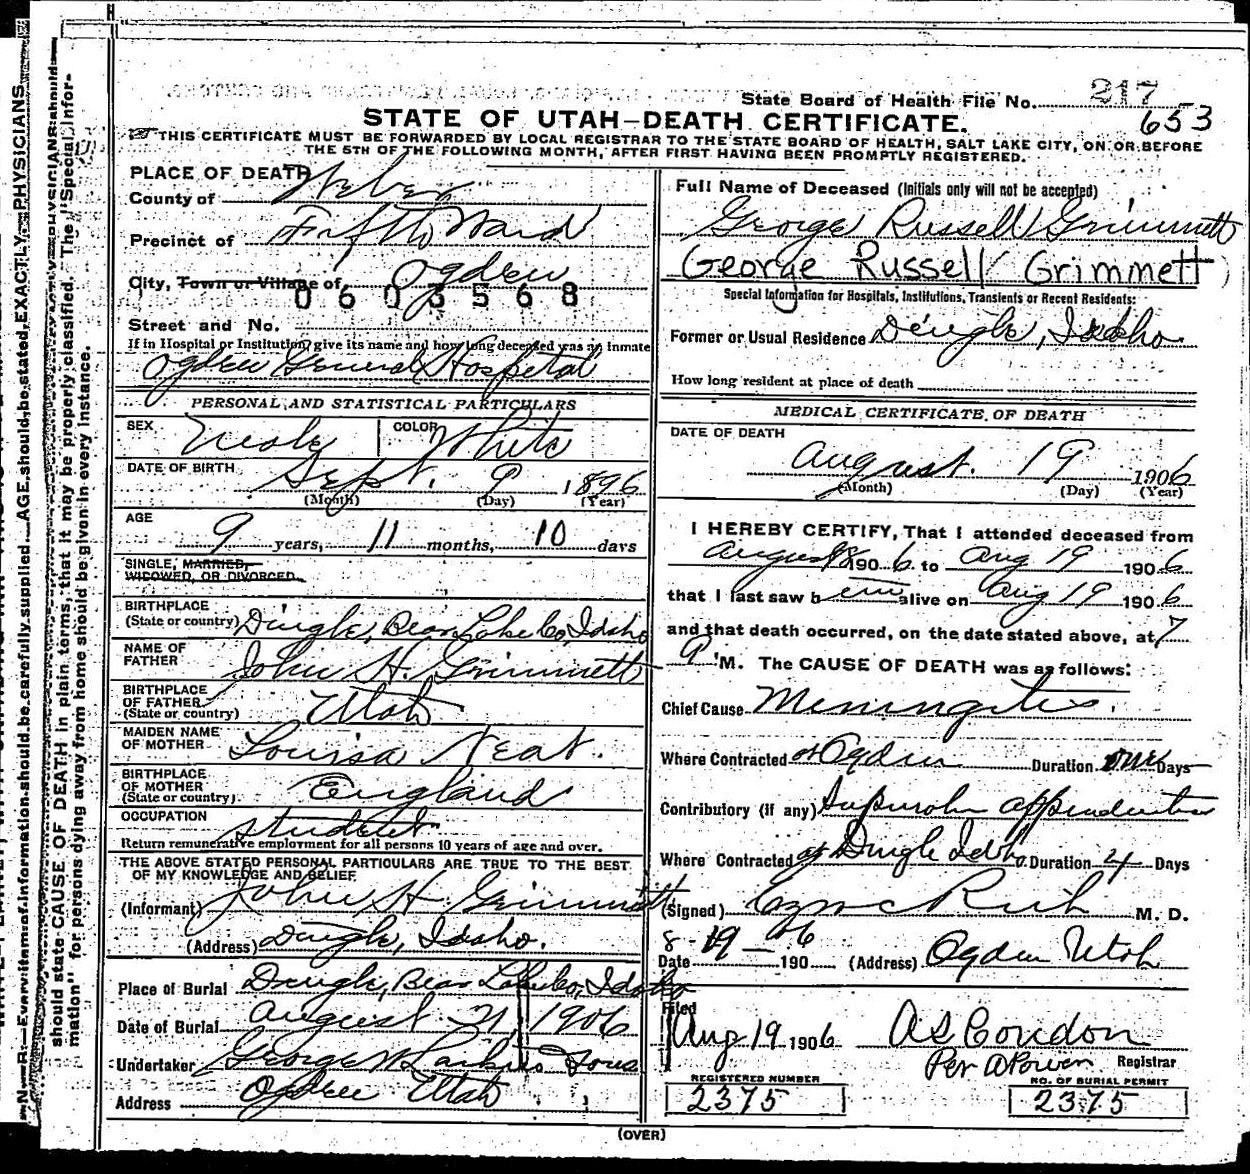 State Board of Health File No. 217
653
STATE OF UTAH—DEATH CERTIFICATE.
THIS CERTIFICATE MUST BE FORWARDED BY LOCAL REGISTRAR TO THE STATE BOARD OF HEALTH, SALT LAKE CITY, ON OR BEFORE
THE 5TH OF THE FOLLOWING MONTH, AFTER FIRST HAVING BEEN PROMPTLY REGISTERED.
PLACE OF DEATH
County of Weber
Precinct of Fifth Ward
City, Town or Village of Ogden
0603568
Street and No.
If in Hospital or Institution, give its name and how long deceased was an inmate
Ogden General Hospital
PERSONAL AND STATISTICAL PARTICULARS
SEX Male COLOR White
DATE OF BIRTH Sept. 9, 1896
(Month) (Day) (Year)
AGE
9 years, 11 months, 10 days
SINGLE, MARRIED,
WIDOWED, OR DIVORCED
BIRTHPLACE
(State or country) Dingle, Bear Lake Co, Idaho
NAME OF
FATHER John H. Grimmett
BIRTHPLACE
OF FATHER
(State or country) Utah
MAIDEN NAME
OF MOTHER Louisa Neat.
BIRTHPLACE
OF MOTHER
(State or country) England
OCCUPATION student
Return remunerative employment for all persons 10 years of age and over.
THE ABOVE STATED PERSONAL PARTICULARS ARE TRUE TO THE BEST
OF MY KNOWLEDGE AND BELIEF
(Informant) John H. Grimmett
(Address) Dingle, Idaho.
Place of Burial Dingle, Bear Lake Co, Idaho
Date of Burial August 21, 1906
Undertaker George W Larkin Sons
Address Ogden Utah
Full Name of Deceased (Initials only will not be accepted)
George Russell Grimmett
George Russell Grimmett
Special Information for Hospitals, Institutions, Transients or Recent Residents:
Former or Usual Residence Dingle, Idaho
How long resident at place of death
MEDICAL CERTIFICATE OF DEATH
DATE OF DEATH
August. 19 1906
(Month) (Day) (Year)
I HEREBY CERTIFY, That I attended deceased from
August 18 1906. to Aug 19 1906
that I last saw h em alive on Aug 19 1906
and that death occurred, on the date stated above, at 7
P M. The CAUSE OF DEATH was as follows:
Chief Cause Meningitis.
Where Contracted at Ogden Duration one Days
Contributory (if any) appendicitis
Where Contracted at Dingle Idaho Duration 4 Days
(Signed) Rich M. D.
Date 8-19-06 190 (Address) Ogden Utah
Filed
Aug 19 1906 A S Condon
Per Registrar
REGISTERED NUMBER
2375
NO. OF BURIAL PERMIT
2375
(OVER)
N. B.—Every item of information should be carefully supplied. AGE should be stated EXACTLY. PHYSICIANS
should state CAUSE OF DEATH in plain terms, that it may be properly classified. The "Special Infor-
mation" for persons dying away from home should be given in every instance.